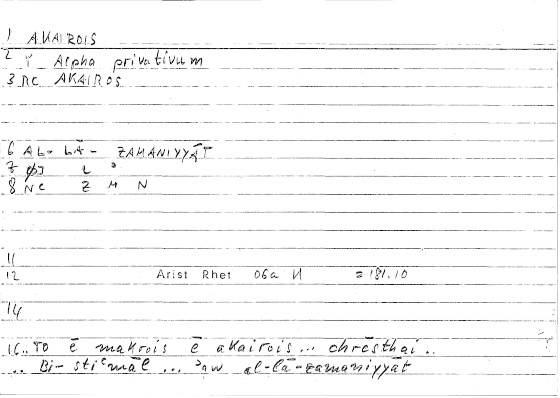 1 AKAIROIS
2 Alpha privativum
3 RC AKAIROS
6 AL-LĀ-ZAMANIYYĀT
7 L ʾ
8 NC Z M N
11
12 Arist Rhet 06a = 181.10
14
16.. TO ē makrois ē akairois... chrēsthai..
.. Bi-stiʿmāl ... ʾaw al-lā-zamaniyyāt